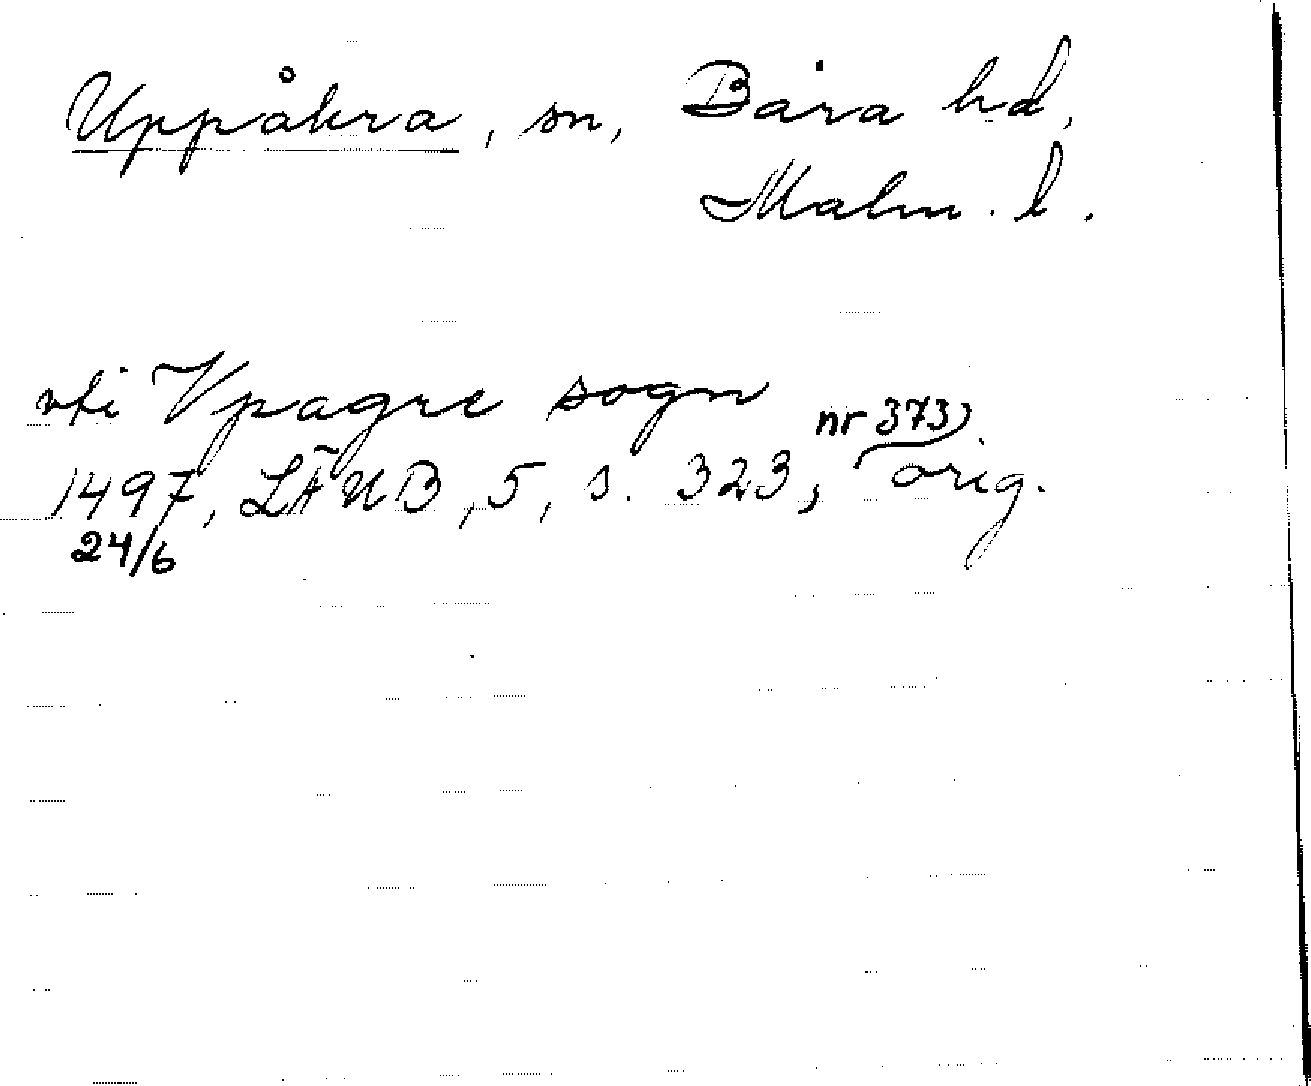 Uppåkra, sn, Bara hd,
Malm. l.
vti Vpagre sogn
1497, LÄUB, 5, s. 323, nr 373, orig.
24/6